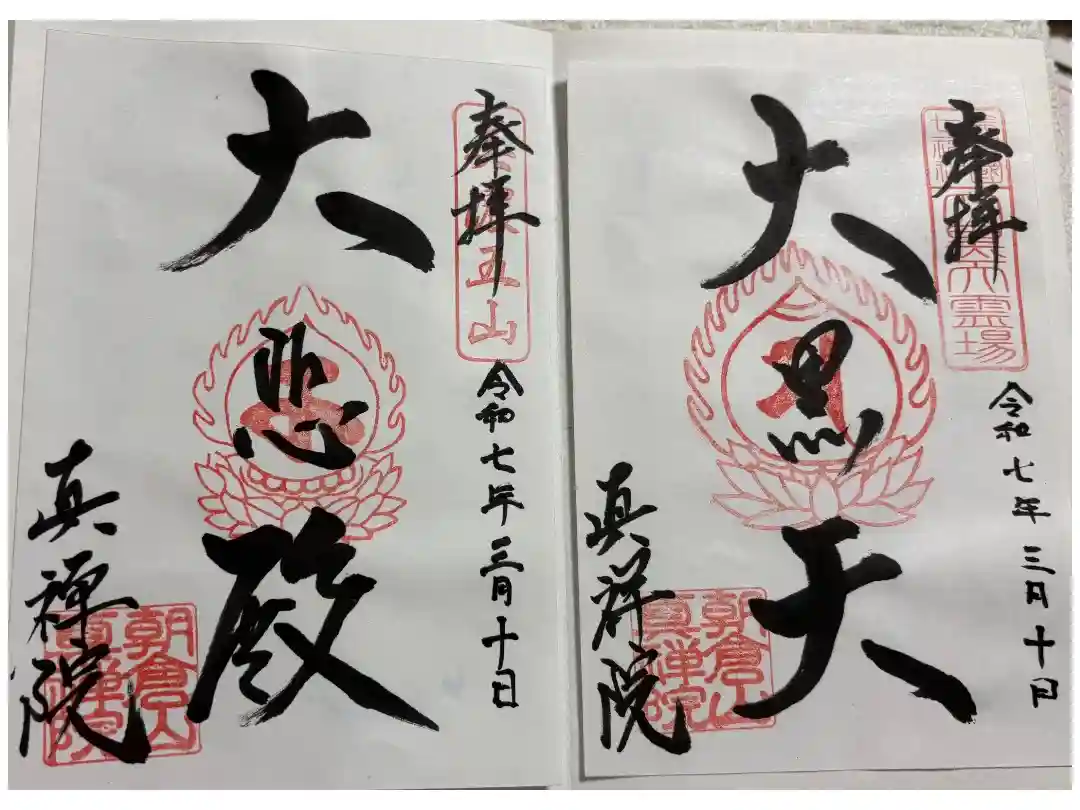 奉拝
霊場
令和七年三月十日
大黒天
真禅院
朝倉山
真禅院
奉拝
五山
令和七年三月十日
大悲殿
真禅院
朝倉山
真禅院